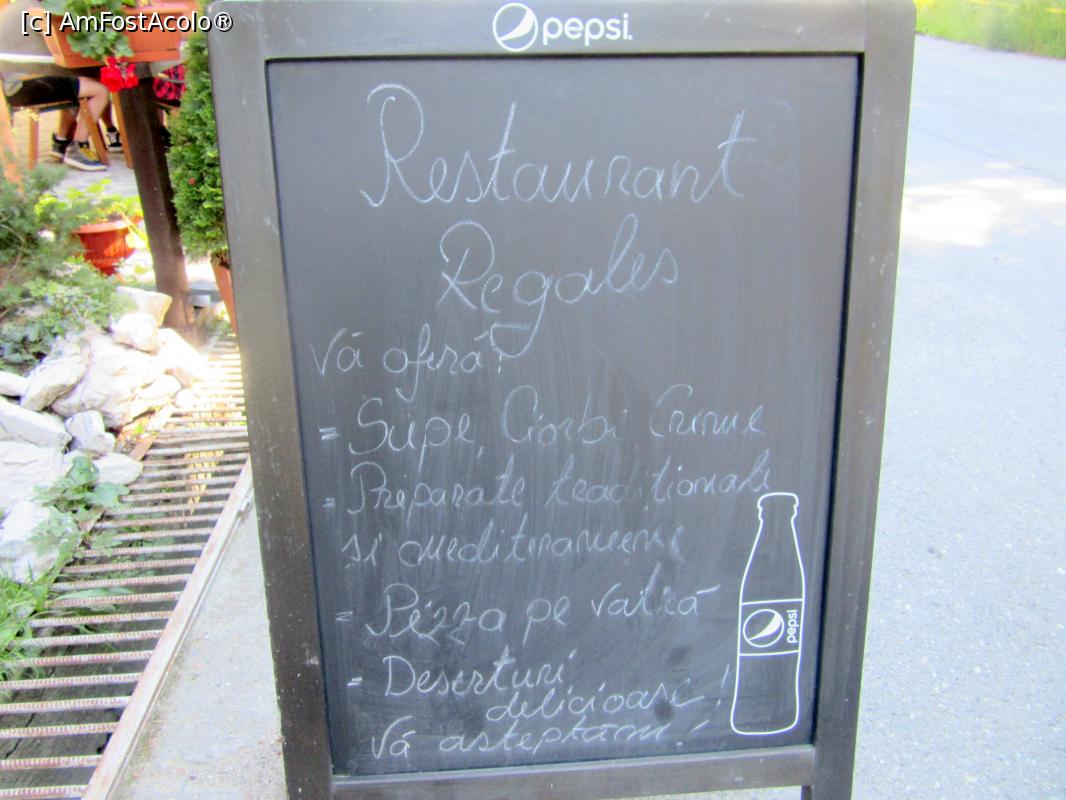 [c] AmFostAcolo®
pepsi.
Restaurant
Regales
Vă oferă:
= Supe, Ciorbi Creme
= Preparate tradiționale
si mediteraneene
= Pizza pe vatră
= Deserturi
delicioase!
Vă asteptăm!
pepsi